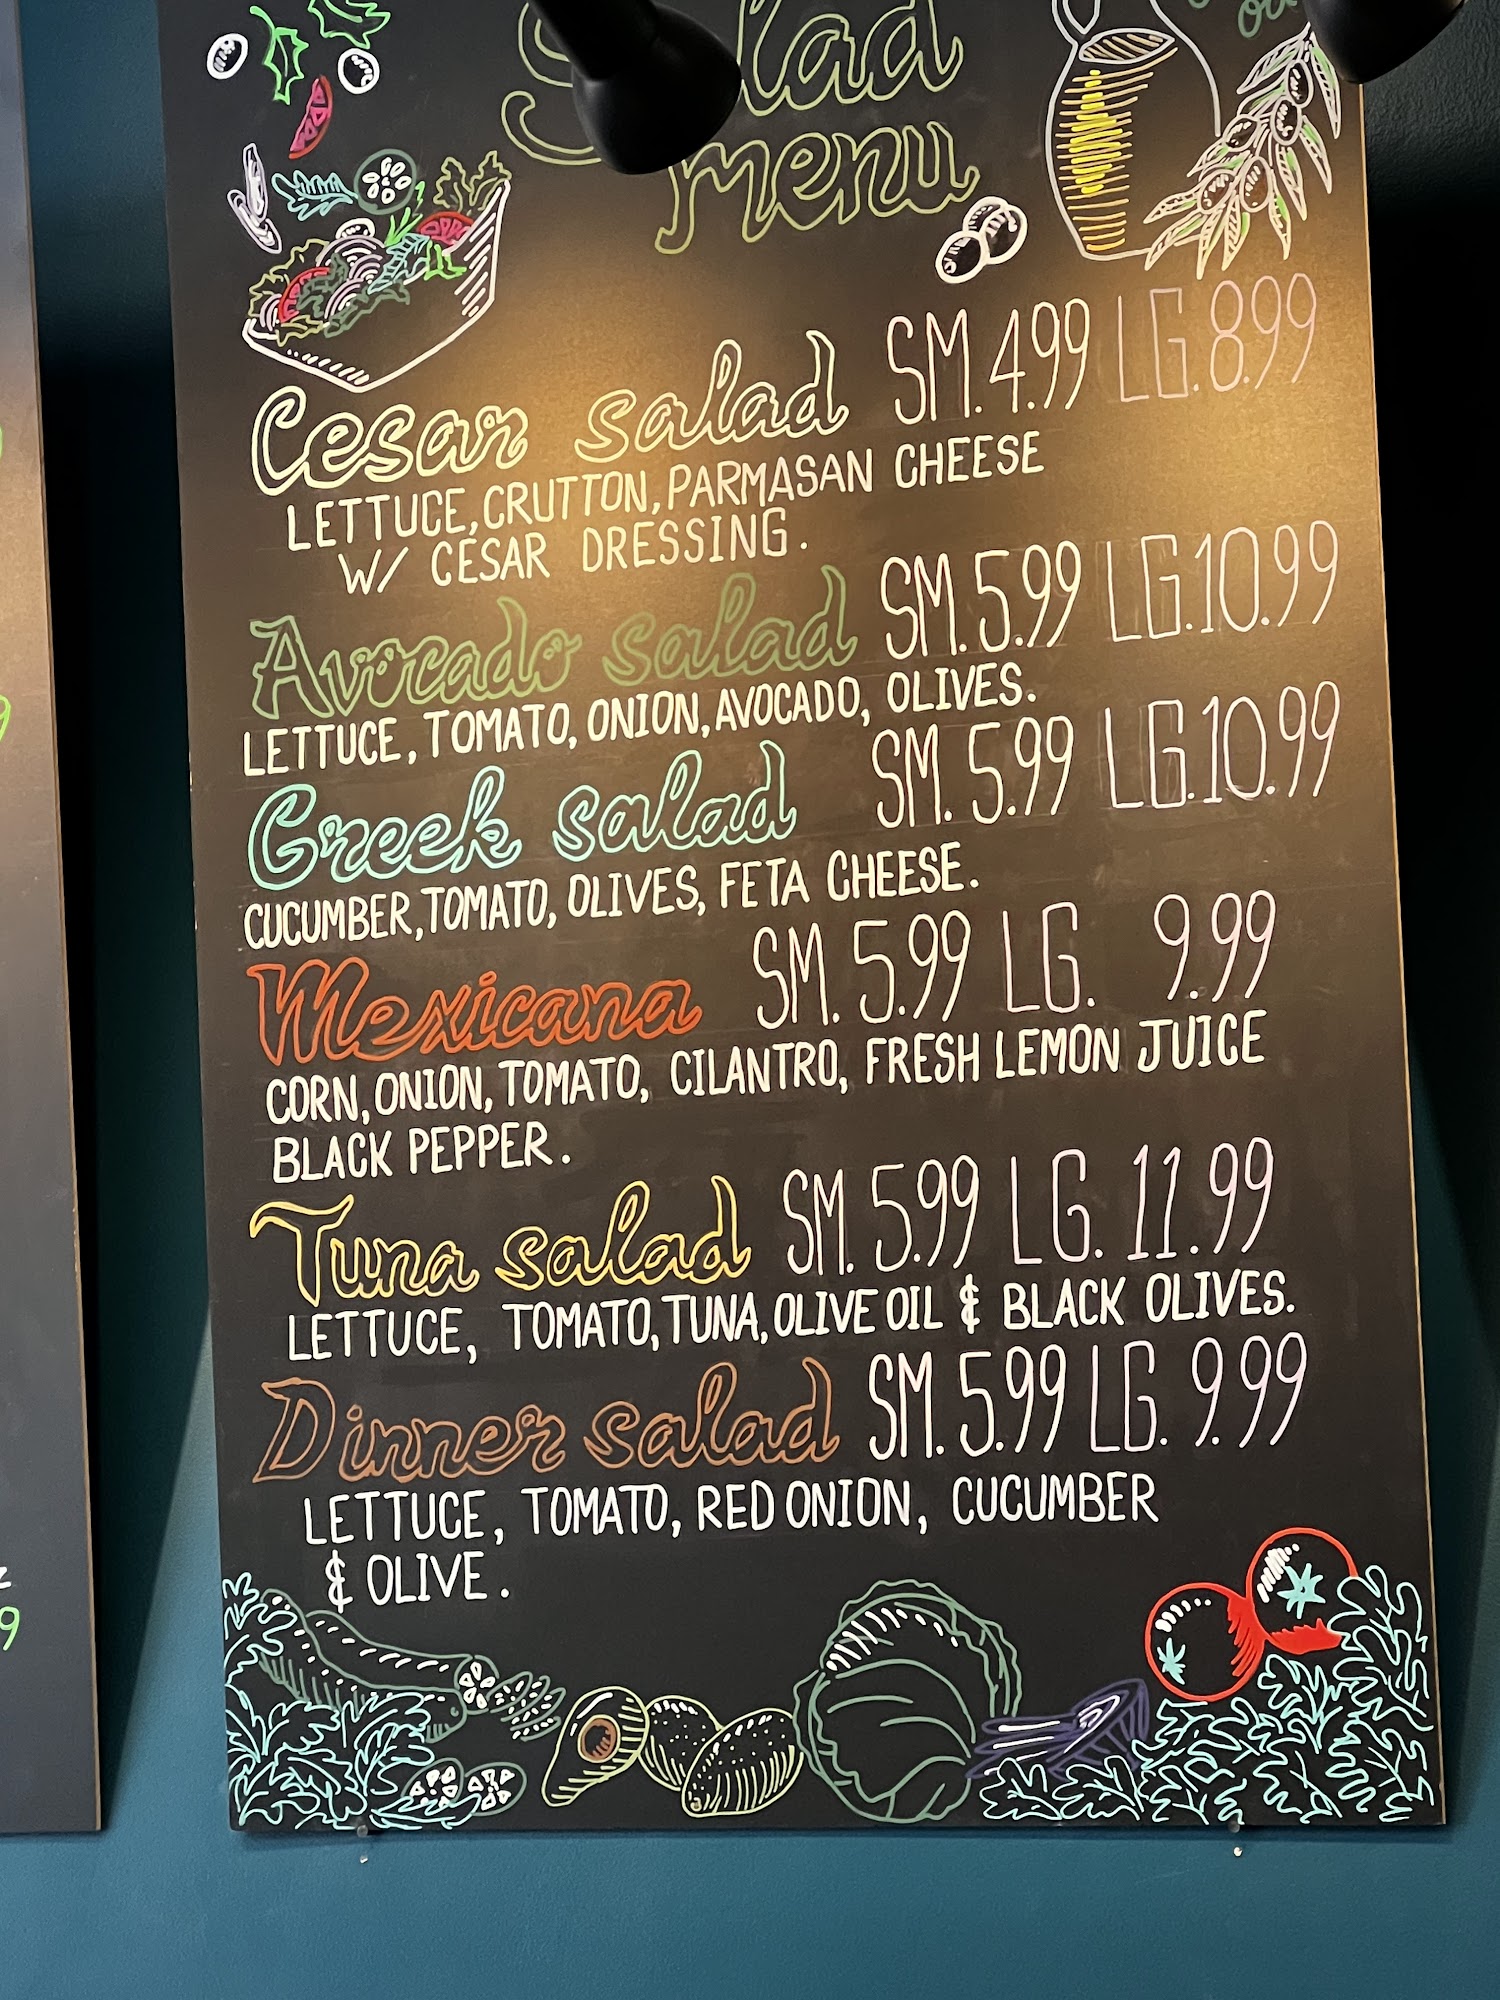 Salad
menu
Cesar salad SM. 4.99 LG. 8.99
LETTUCE, CRUTTON, PARMASAN CHEESE
W/ CESAR DRESSING.
Avocado salad SM. 5.99 LG. 10.99
LETTUCE, TOMATO, ONION, AVOCADO, OLIVES.
Greek salad SM. 5.99 LG. 10.99
CUCUMBER, TOMATO, OLIVES, FETA CHEESE.
Mexicana SM. 5.99 LG. 9.99
CORN, ONION, TOMATO, CILANTRO, FRESH LEMON JUICE
BLACK PEPPER.
Tuna salad SM. 5.99 LG. 11.99
LETTUCE, TOMATO, TUNA, OLIVE OIL & BLACK OLIVES.
Dinner salad SM. 5.99 LG. 9.99
LETTUCE, TOMATO, RED ONION, CUCUMBER
& OLIVE.